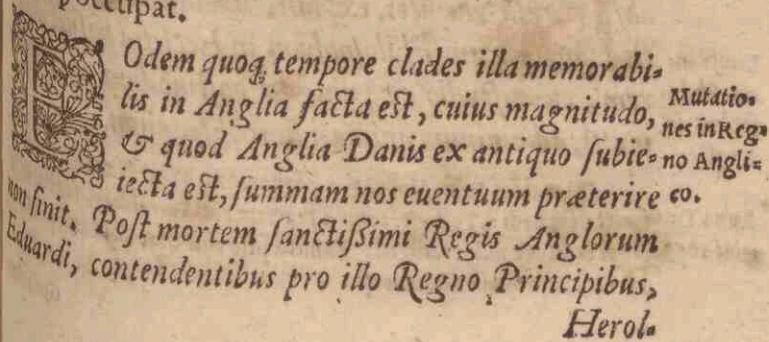 occupat.
EOdem quoq; tempore clades illa memorabi-
lis in Anglia facta est, cuius magnitudo,
& quod Anglia Danis ex antiquo subie-
iecta est, summam nos euentuum præterire
non sinit. Post mortem sanctißimi Regis Anglorum
Eduardi, contendentibus pro illo Regno Principibus,
Herol-
Mutatio-
nes in Reg-
no Angli-
co.